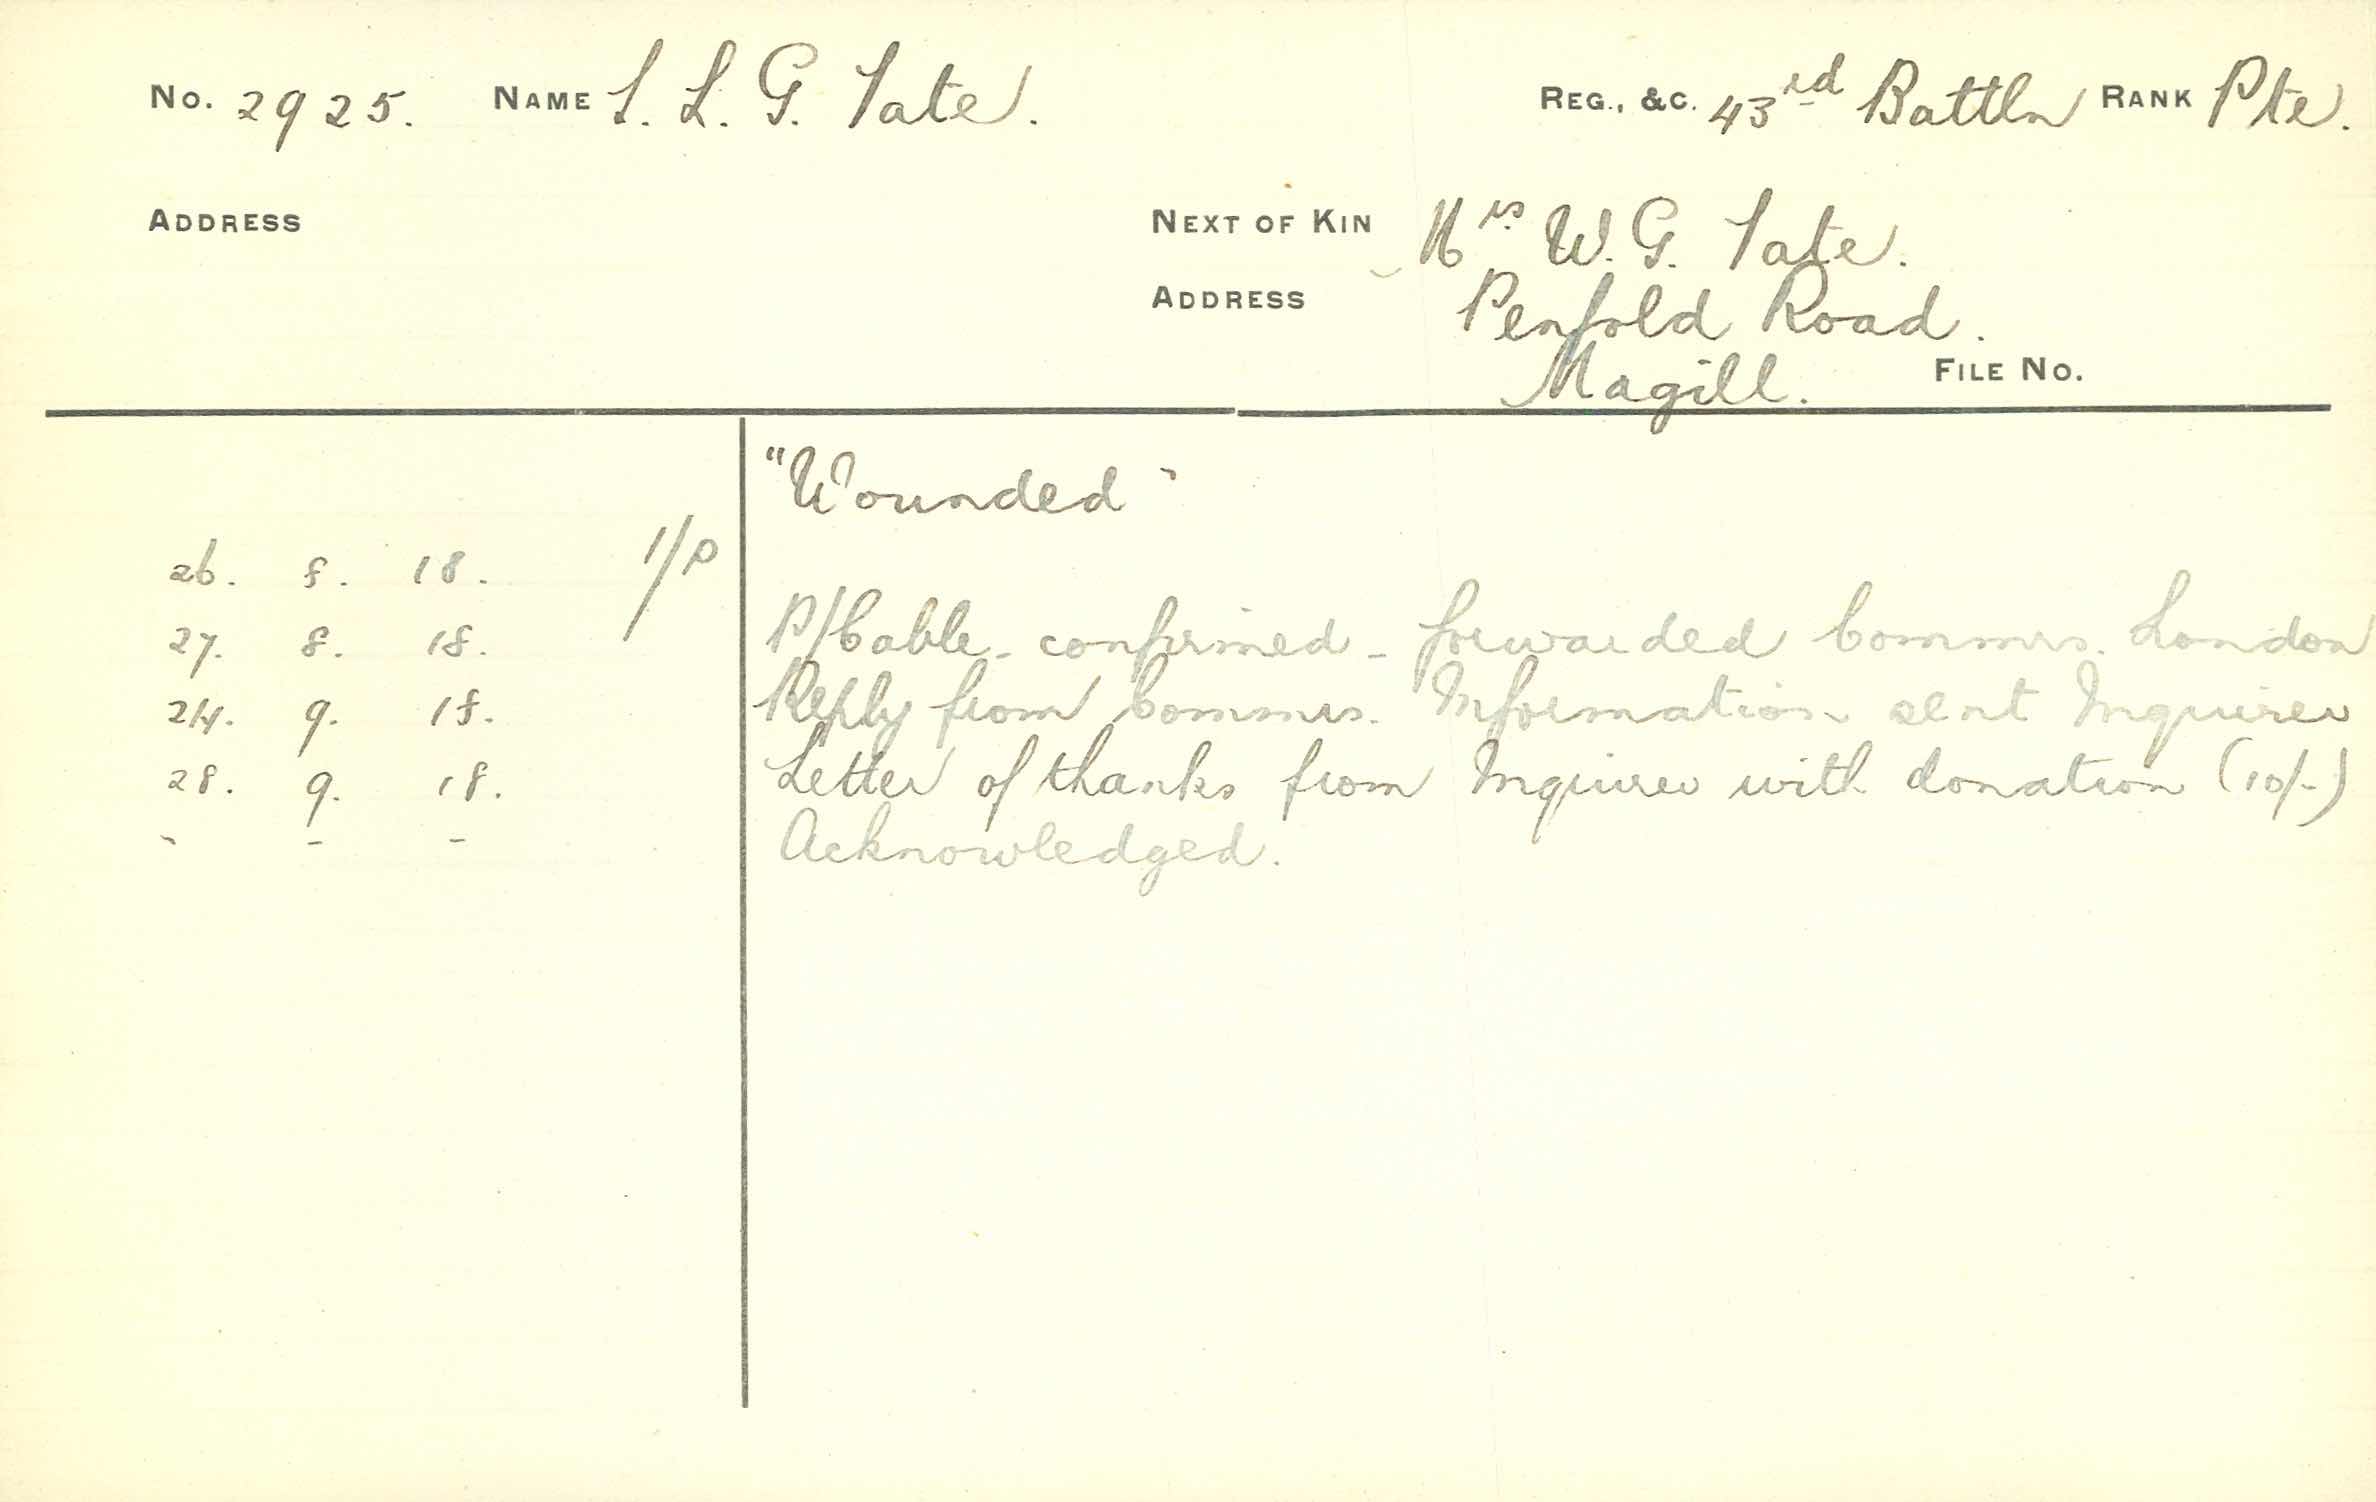 No. 2925. NAME S. L. G. Tate. REG., &C. 43rd Battln RANK Pte.
ADDRESS NEXT OF KIN Mrs. W. G. Tate.
ADDRESS Penfold Road.
Magill. FILE No.
"Wounded"
26. 8. 18. 1/P
27. 8. 18. P/Cable - confirmed - forwarded Commrs. London
24. 9. 18. Reply from Commrs. Information sent Inquirer
28. 9. 18. Letter of thanks from Inquirer with donation (10/-)
" - - Acknowledged.